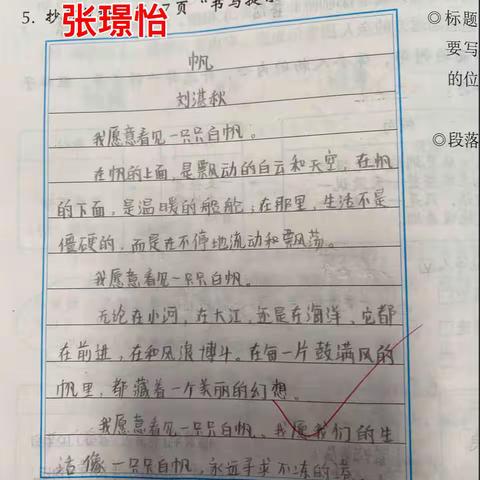 张璟怡
5. 抄
7页“书写提示
◎标题
要写
的位
◎段落
帆
刘湛秋
我愿意看见一只只白帆。
在帆的上面,是飘动的白云和天空,在帆
的下面,是温暖的船舱;在那里,生活不是
僵硬的,而是在不停地流动和飘荡。
我愿意看见一只只白帆。
无论在小河,在大江,还是在海洋、它都
在前进,在和风浪博斗。在每一片鼓满风的
帆里,都藏着一个美丽的幻想。
我愿意看见一只只白帆、我愿我们的生
活像一只只白帆,永远寻求不冻的港。